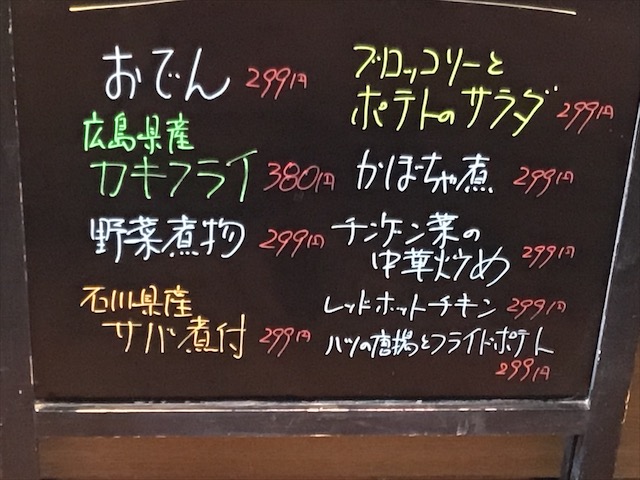 おでん 299円
広島県産
カキフライ 380円
野菜煮物 299円
石川県産
サバ煮付 299円
ブロッコリーと
ポテトのサラダ 299円
かぼちゃ煮 299円
チンゲン菜の
中華炒め 299円
レッドホットチキン 299円
ハツの唐揚とフライドポテト
299円